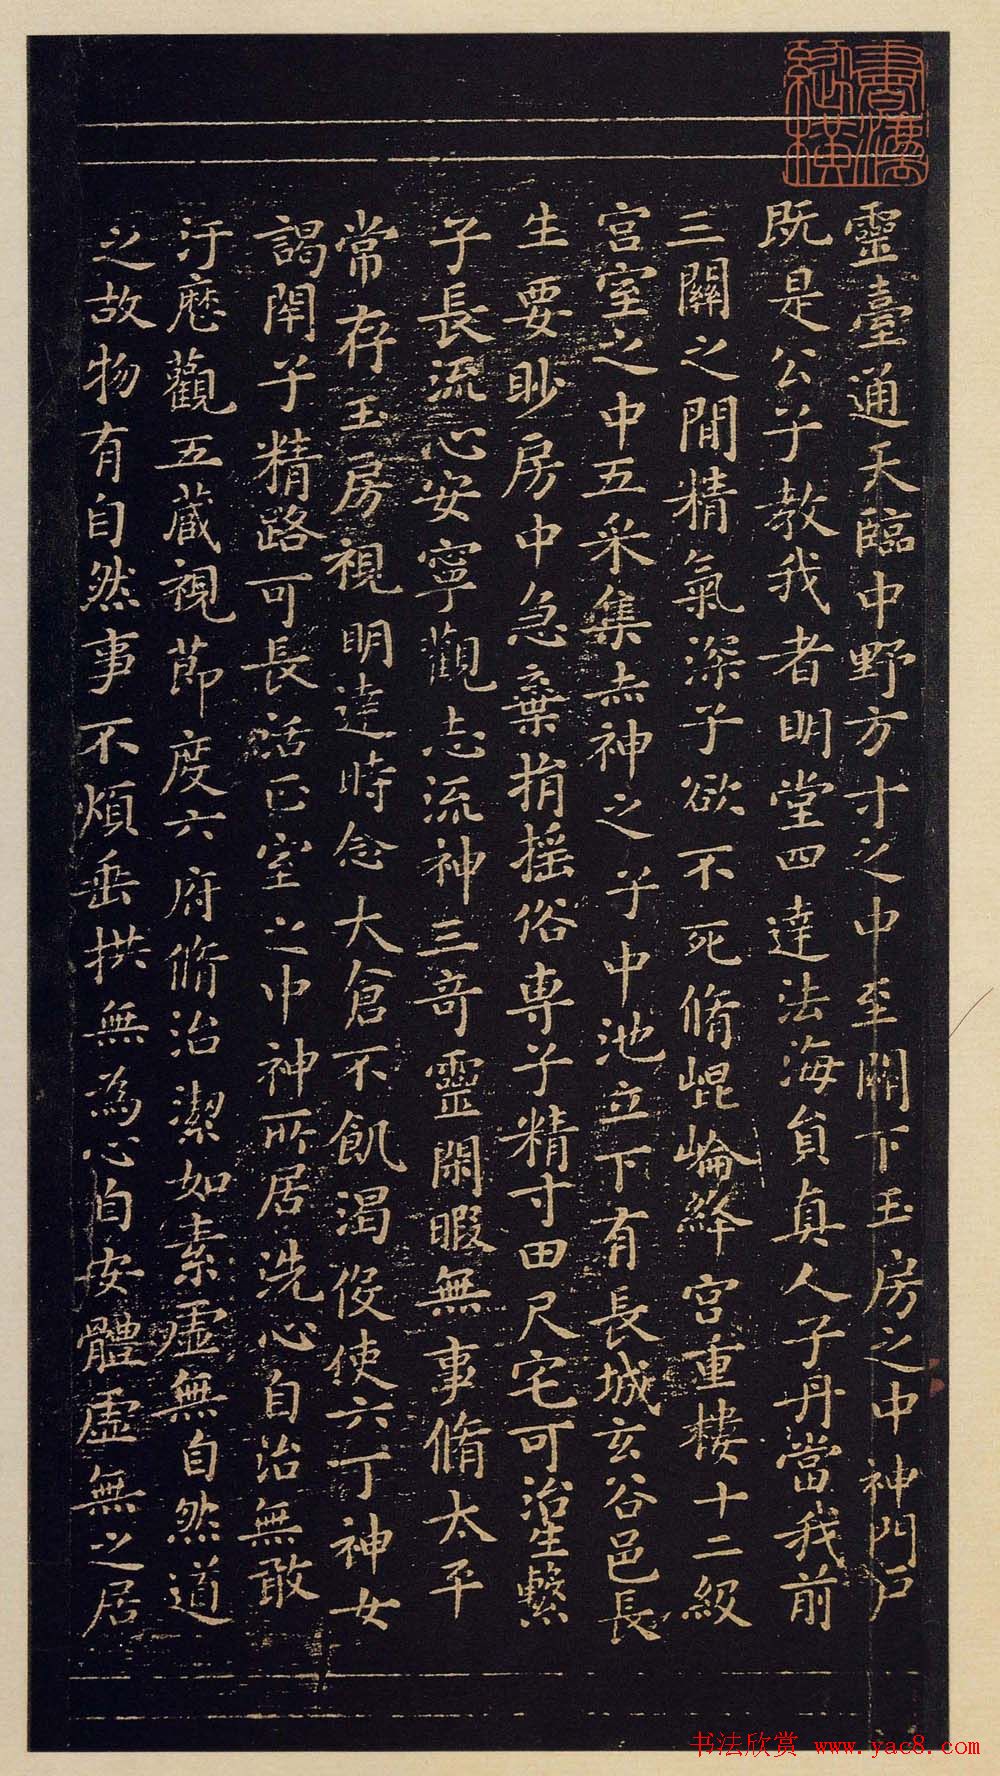 靈臺通天臨中野方寸之中至關下玉房之中神門戶
既是公子教我者明堂四達法海員真人子丹當我前
三關之間精氣深子欲不死脩崐崘絳宮重樓十二級
宮室之中五采集赤神之子中池立下有長城玄谷邑長
生要眇房中急棄捐摇俗専子精寸田尺宅可治生繫
子長流心安寧觀志流神三奇靈閑暇無事脩太平
常存玉房視明達時念大倉不飢渴役使六丁神女
謁閇子精路可長活正室之中神所居洗心自治無敢
汙歷觀五藏視節度六府脩治潔如素虛無自然道
之故物有自然事不煩垂拱無為心自安體虛無之居
书法欣赏 www.yac8.com